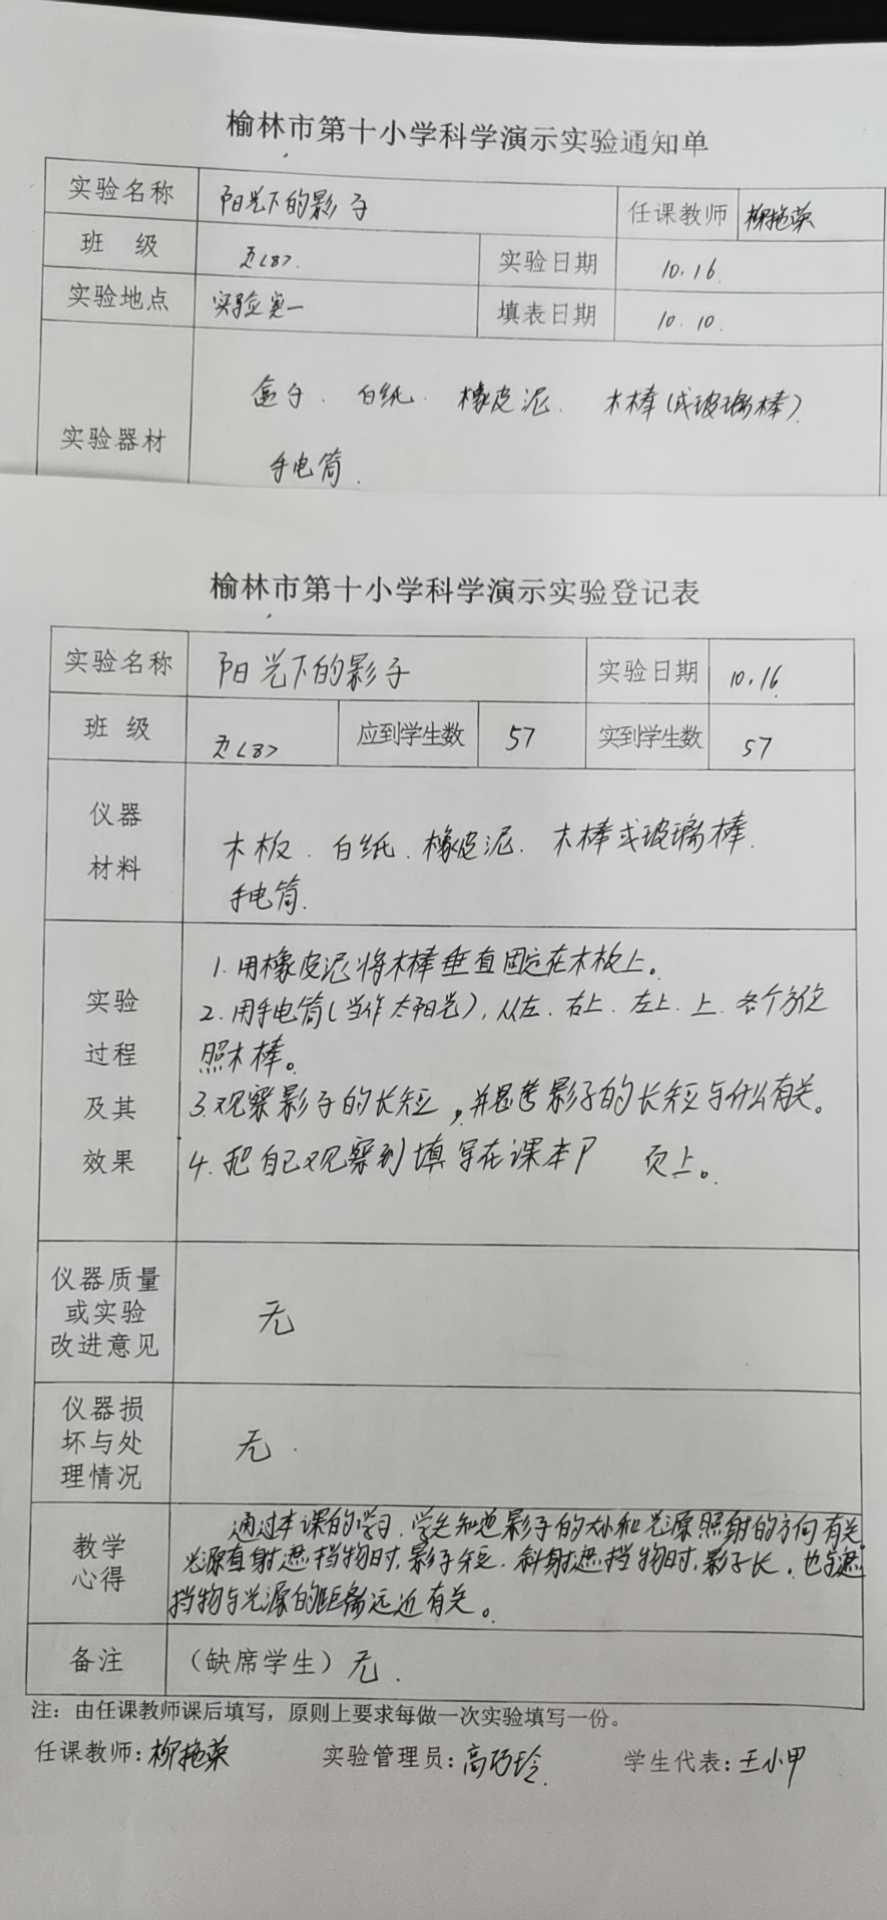 榆林市第十小学科学演示实验通知单
实验名称 阳光下的影子 任课教师 柳艳荣
班 级 五<8>. 实验日期 10.16.
实验地点 实验室一 填表日期 10.10.
实验器材 盒子.白纸.橡皮泥.木棒(或玻璃棒)
手电筒.
榆林市第十小学科学演示实验登记表
实验名称 阳光下的影子 实验日期 10.16.
班 级 五<8> 应到学生数 57 实到学生数 57
仪器
材料
木板.白纸.橡皮泥.木棒或玻璃棒.
手电筒.
实验
过程
及其
效果
1.用橡皮泥将木棒垂直固定在木板上。
2.用手电筒(当作太阳光),从左.右上.左上.上.各个方位
照木棒。
3.观察影子的长短,并思考影子的长短与什么有关。
4.把自己观察到填写在课本P 页上。
仪器质量
或实验
改进意见
无
仪器损
坏与处
理情况
无.
教学
心得
通过本课的学习.学生知道影子的大小和光源照射的方向有关
光源直射遮挡物时,影子短.斜射遮挡物时,影子长.也与遮
挡物与光源的距离远近有关。
备注 (缺席学生)无.
注:由任课教师课后填写,原则上要求每做一次实验填写一份。
任课教师:柳艳荣 实验管理员:高巧玲. 学生代表:王小甲